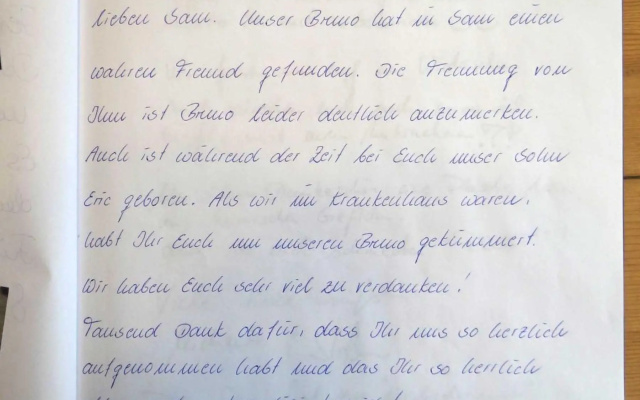 lieben Sam. Unser Bruno hat in Sam einen
wahren Freund gefunden. Die Trennung von
Ihm ist Bruno leider deutlich anzumerken.
Auch ist während der Zeit bei Euch unser Sohn
Eric geboren. Als wir im Krankenhaus waren,
habt Ihr Euch um unseren Bruno gekümmert.
Wir haben Euch sehr viel zu verdanken!
Tausend Dank dafür, dass Ihr uns so herzlich
aufgenommen habt und das Ihr so herrlich